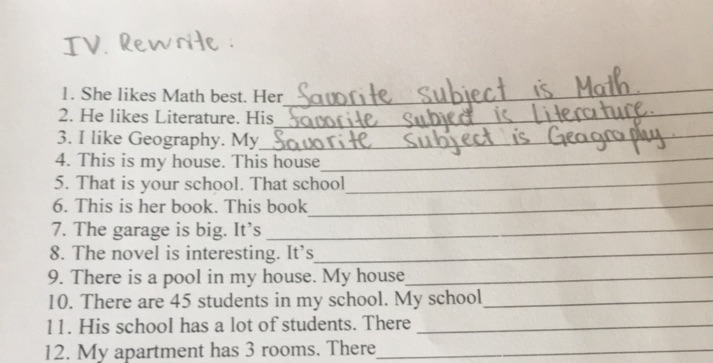 IV. Rewrite:
1. She likes Math best. Her favorite subject is Math.
2. He likes Literature. His favorite subject is Literature.
3. I like Geography. My favorite subject is Geagraphy.
4. This is my house. This house
5. That is your school. That school
6. This is her book. This book
7. The garage is big. It's
8. The novel is interesting. It's
9. There is a pool in my house. My house
10. There are 45 students in my school. My school
11. His school has a lot of students. There
12. My apartment has 3 rooms. There